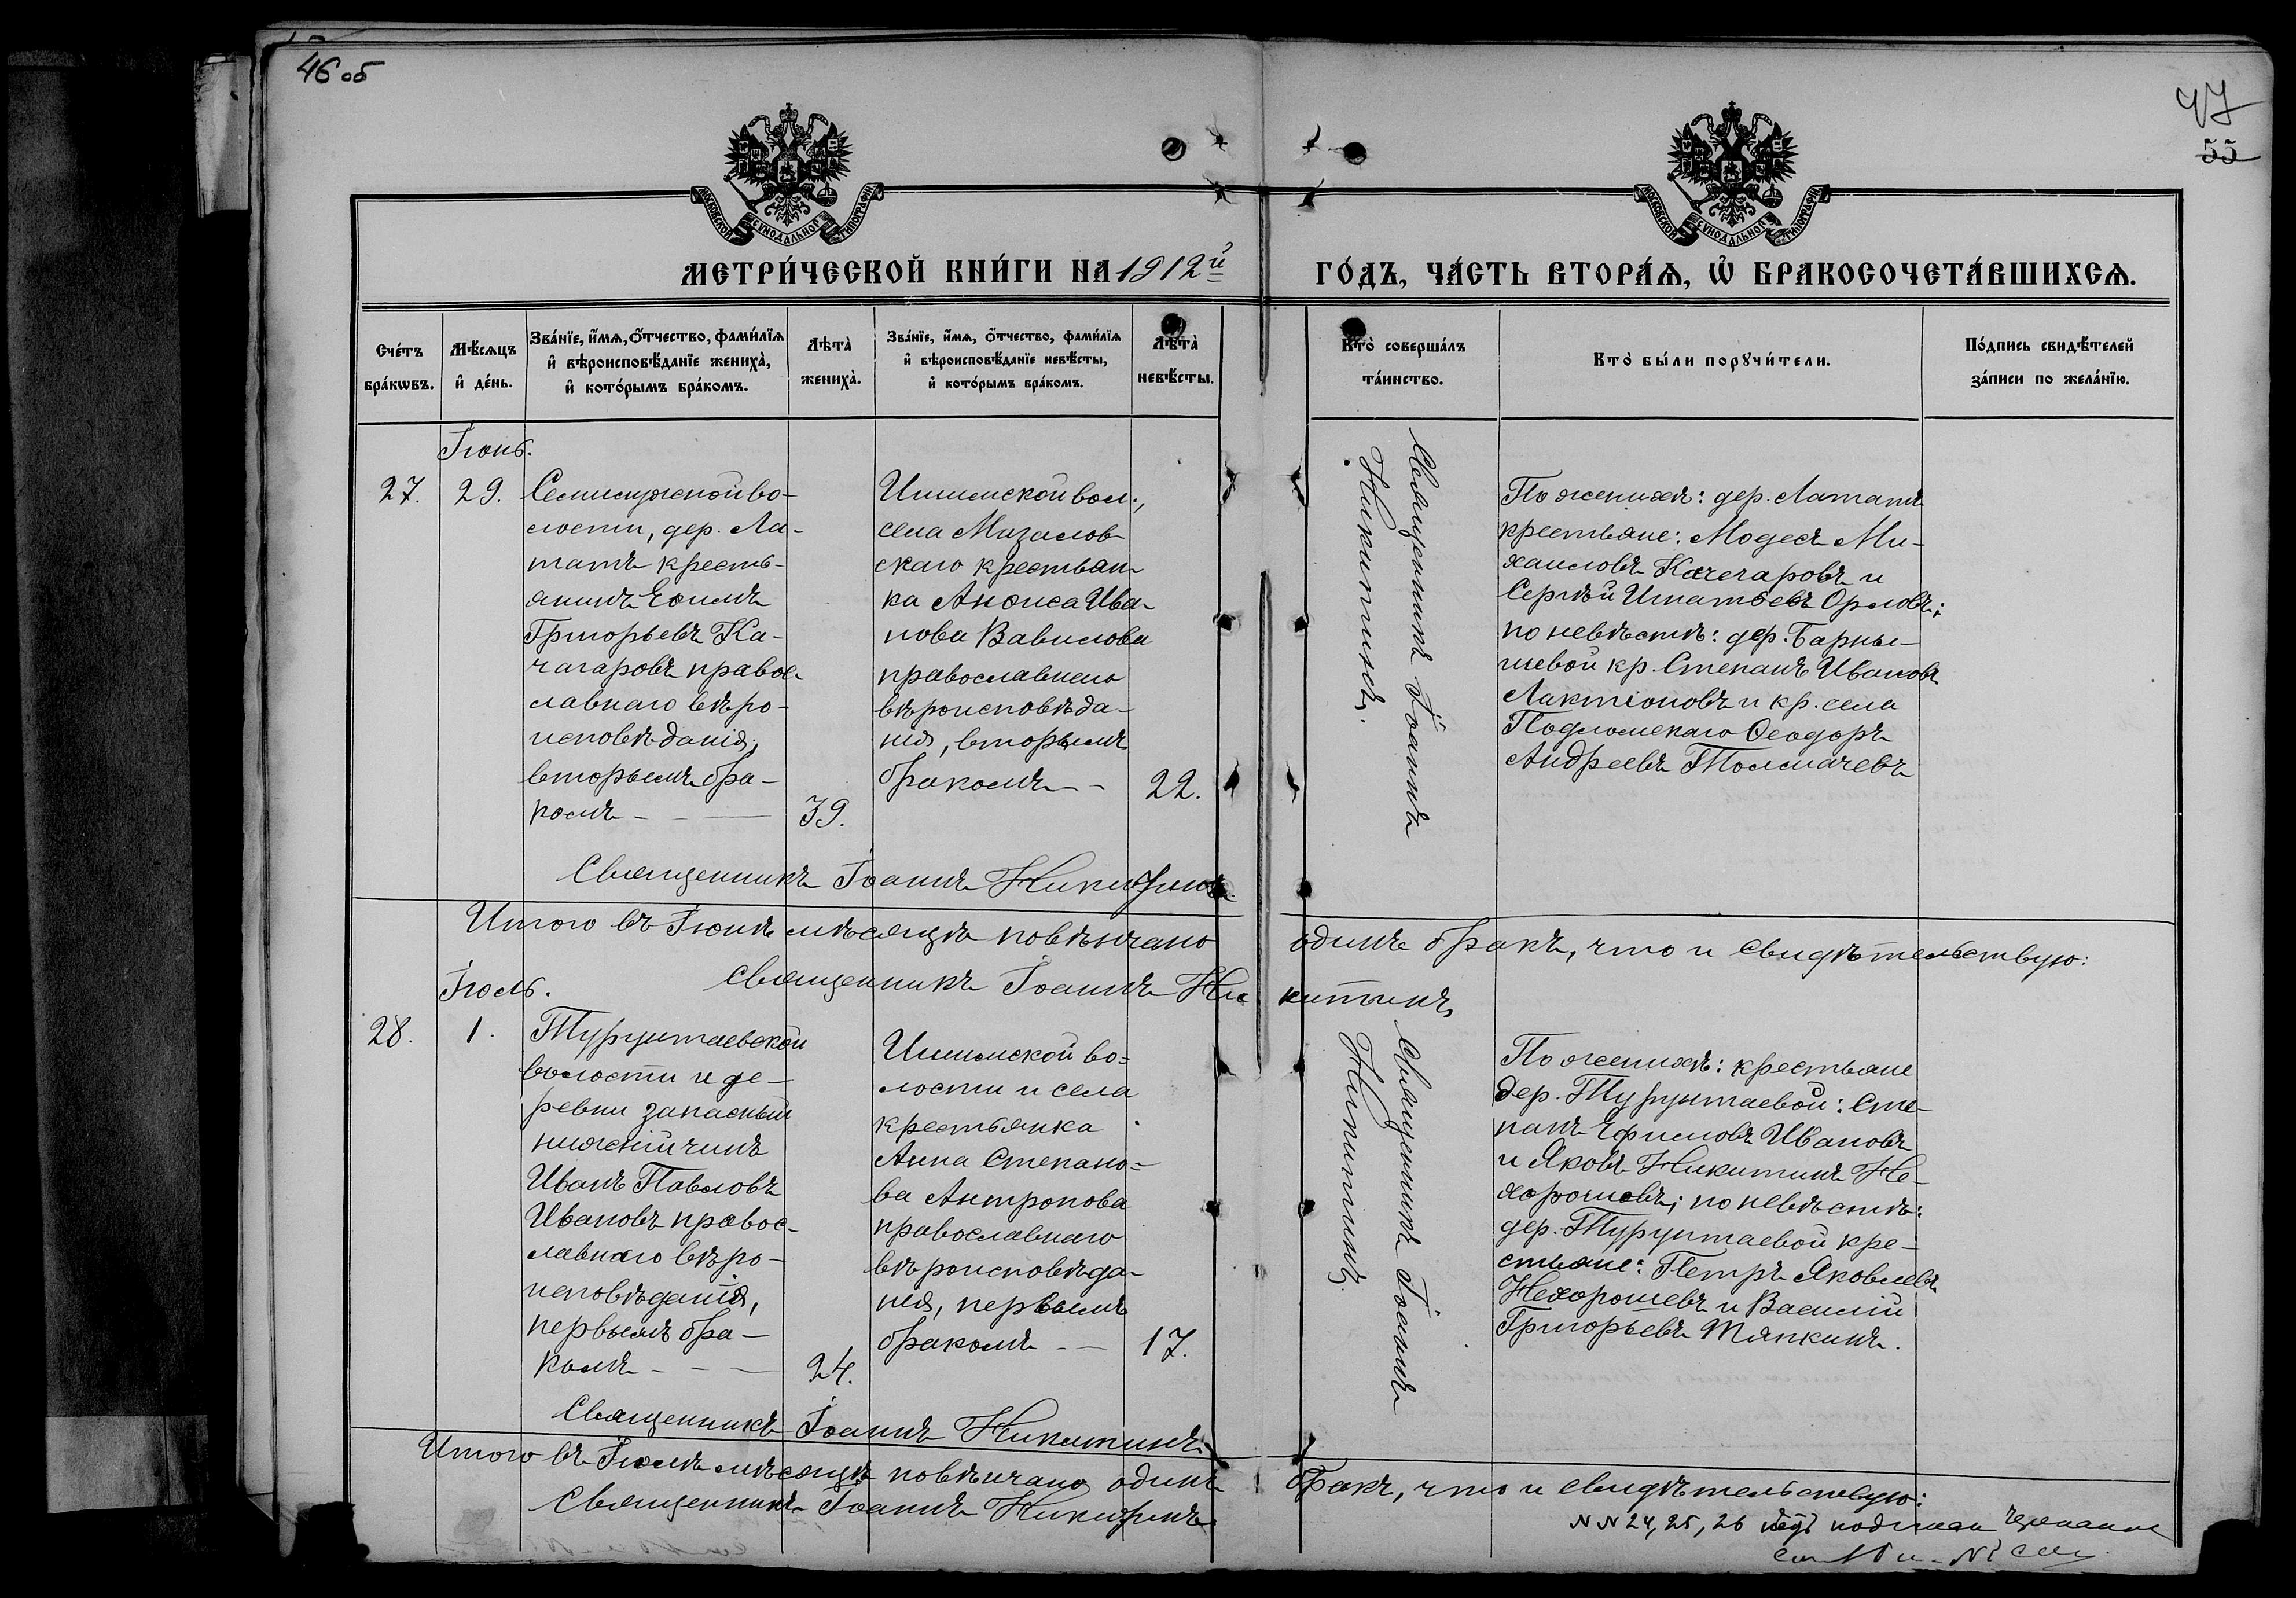 46 об
47
55
МОСКОВСКОЙ СѴНОДАЛЬНОЙ ТИПОГРАФІИ
МОСКОВСКОЙ СѴНОДАЛЬНОЙ ТИПОГРАФІИ
МЕТРИ́ЧЕСКОЙ КНИ́ГИ НА 1912й
ГО́ДЪ, ЧА́СТЬ ВТОРА́Ѧ, Ѡ҆ БРАКОСОЧЕТА́ВШИХСѦ.
Сче́тъ
бра́кѡвъ.
Мѣ́сѧцъ
и҆ де́нь.
Зва́нїе, и҆́мѧ, ѻ҆́тчество, фами́лїѧ
и҆ вѣроисповѣ́данїе женихà,
и҆ кото́рымъ бра́комъ.
Лѣтà
женихà.
Зва́нїе, и҆́мѧ, ѻ҆́тчество, фами́лїѧ
и҆ вѣроисповѣ́данїе невѣ́сты,
и҆ кото́рымъ бра́комъ.
Лѣтà
невѣ́сты.
Ктò соверша́лъ
та́инство.
Ктò бы́ли порꙋчи́тели.
По́дпись свидѣ́телей
за́писи по жела́нїю.
Іюнь.
27.
29.
Семилужной во-
лости, дер. Ла-
татъ кресть-
янинъ Ефимъ
Григорьевъ Ка-
чагаровъ право-
славнаго вѣро-
исповѣданія,
вторымъ бра-
комъ
39.
Ишимской вол.,
села Мизалов-
скаго крестьян-
ка Анфиса Ива-
нова Вавилова
православнаго
вѣроисповѣда-
нія, вторымъ
бракомъ
22.
Священникъ Іоаннъ
Никитинъ.
По женихѣ: дер. Лататъ
крестьяне: Модестъ Ми-
хаиловъ Качегаровъ и
Сергѣй Игнатьевъ Орловъ;
по невѣстѣ: дер. Барны-
шевой кр. Степанъ Ивановъ
Лактіоновъ и кр. села
Подломскаго Ѳеодоръ
Андреевъ Толмачевъ
Священникъ Іоаннъ Никитинъ.
Итого въ Іюнѣ мѣсяцѣ повѣнчано одинъ бракъ, что и свидѣтельствую:
Священникъ Іоаннъ Никитинъ.
Іюль.
28.
1.
Турунтаевской
волости и де-
ревни запасный
нижній чинъ
Иванъ Павловъ
Ивановъ право-
славнаго вѣро-
исповѣданія,
первымъ бра-
комъ
24.
Ишимской во-
лости и села
крестьянка
Анна Степано-
ва Антропова
православнаго
вѣроисповѣда-
нія, первымъ
бракомъ
17.
Священникъ Іоаннъ
Никитинъ.
По женихѣ: крестьяне
дер. Турунтаевой: Сте-
панъ Ефимовъ Ивановъ
и Яковъ Никитинъ Не-
хорошевъ; по невѣстѣ:
дер. Турунтаевой кре-
стьяне: Петръ Яковлевъ
Нехорошевъ и Василій
Григорьевъ Тяпкинъ.
Священникъ Іоаннъ Никитинъ.
Итого въ Іюлѣ мѣсяцѣ повѣнчано одинъ бракъ, что и свидѣтельствую:
Священникъ Іоаннъ Никитинъ.
NN 24, 25, 26